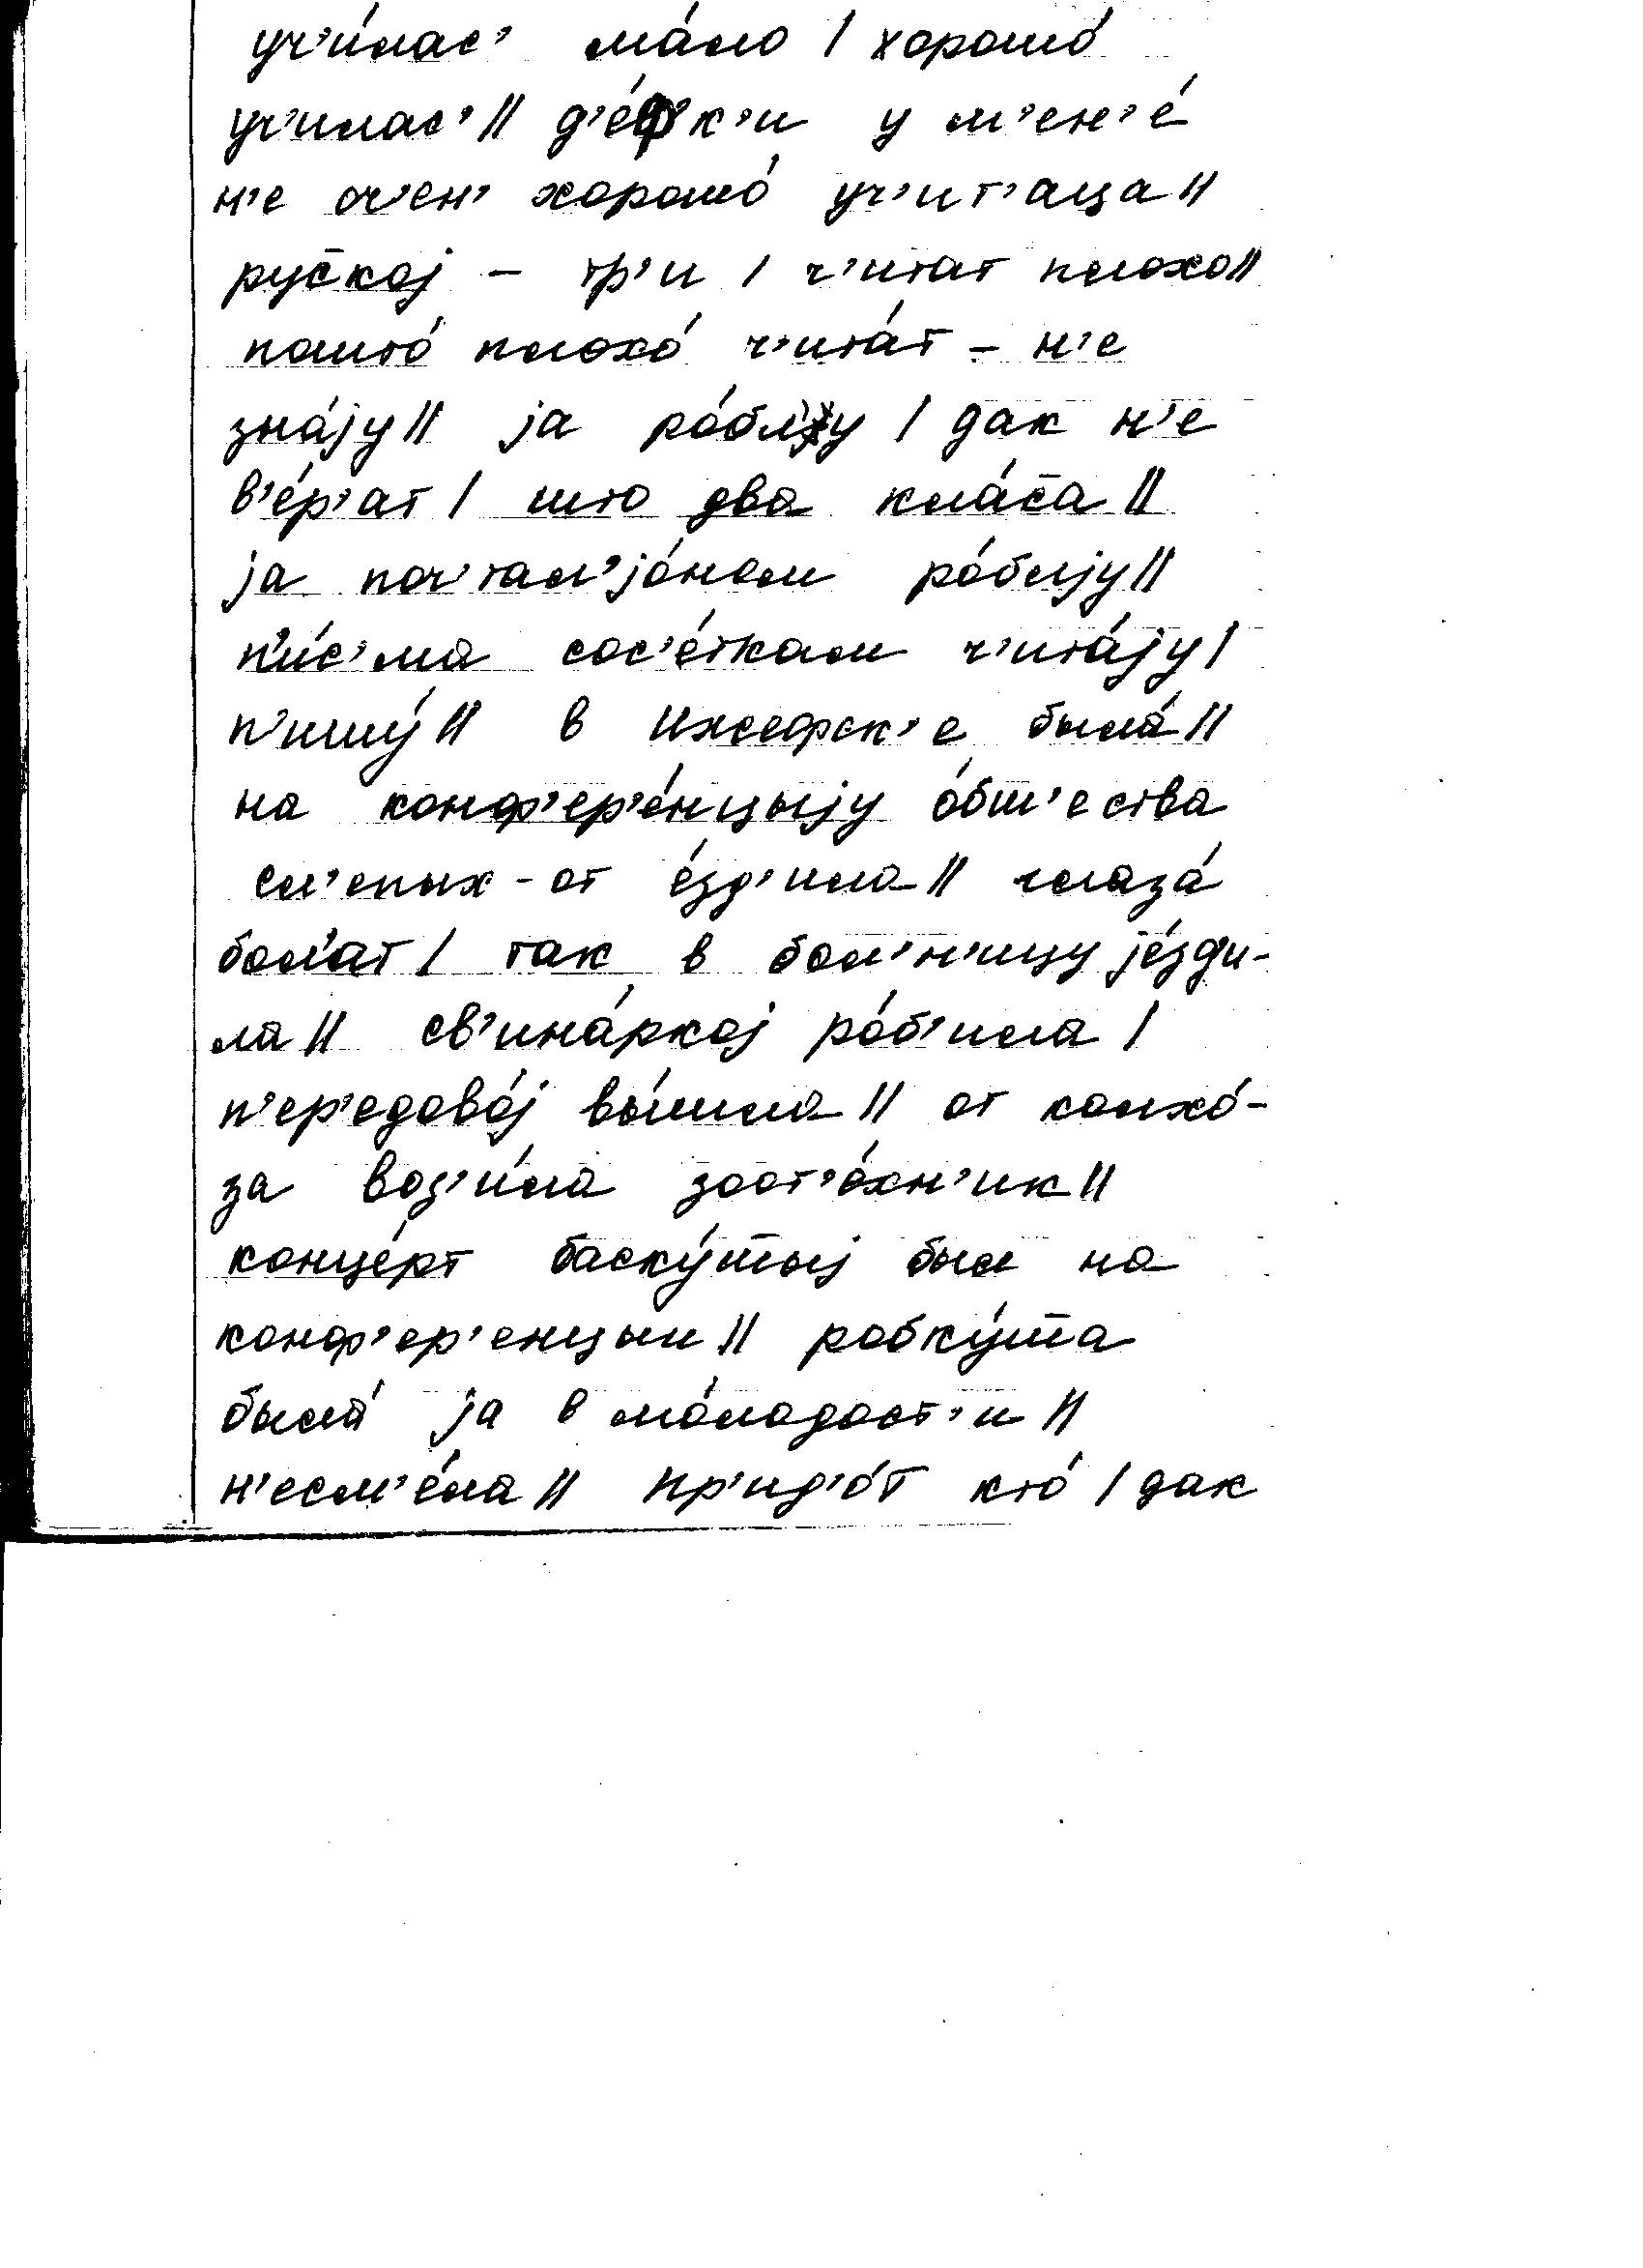 уч'и́лас' ма́ло / хорошо́
уч'илас' // д'е́фк'и у м'ен'е́
н'е оч'ен' хорошо́ уч'ит'аца //
рус̄кој – тр'и / ч'итат плохо //
пошто́ плохо́ ч'ита́т – н'е
зна́ју // ја ро́бл'у / дак н'е
в'е́р'ат / што два кла́с̄а //
ја поч'тал'јо́ном ро́блју //
п'и́с'ма сос'е́ткам ч'ита́ју /
п'ишу́ // в Ижефск'е была́ //
на конф'ер'е́нцыју о́бш'ества
сл'епых-от е́зд'ила // глаза́
бол'ат / так в бол'н'ицу је́зди-
ла // св'ина́ркој ро́б'ила /
п'ер'едово́ј вы́шла // от колхо́-
за воз'и́ла зоот'е́хн'ик //
конце́рт баску́ш̄ыј был на
конф'ер'енцыи // робку́ш̄а
была́ ја в мо́лодост'и //
н'есм'е́ла // пр'ид'о́т кто́ / дак